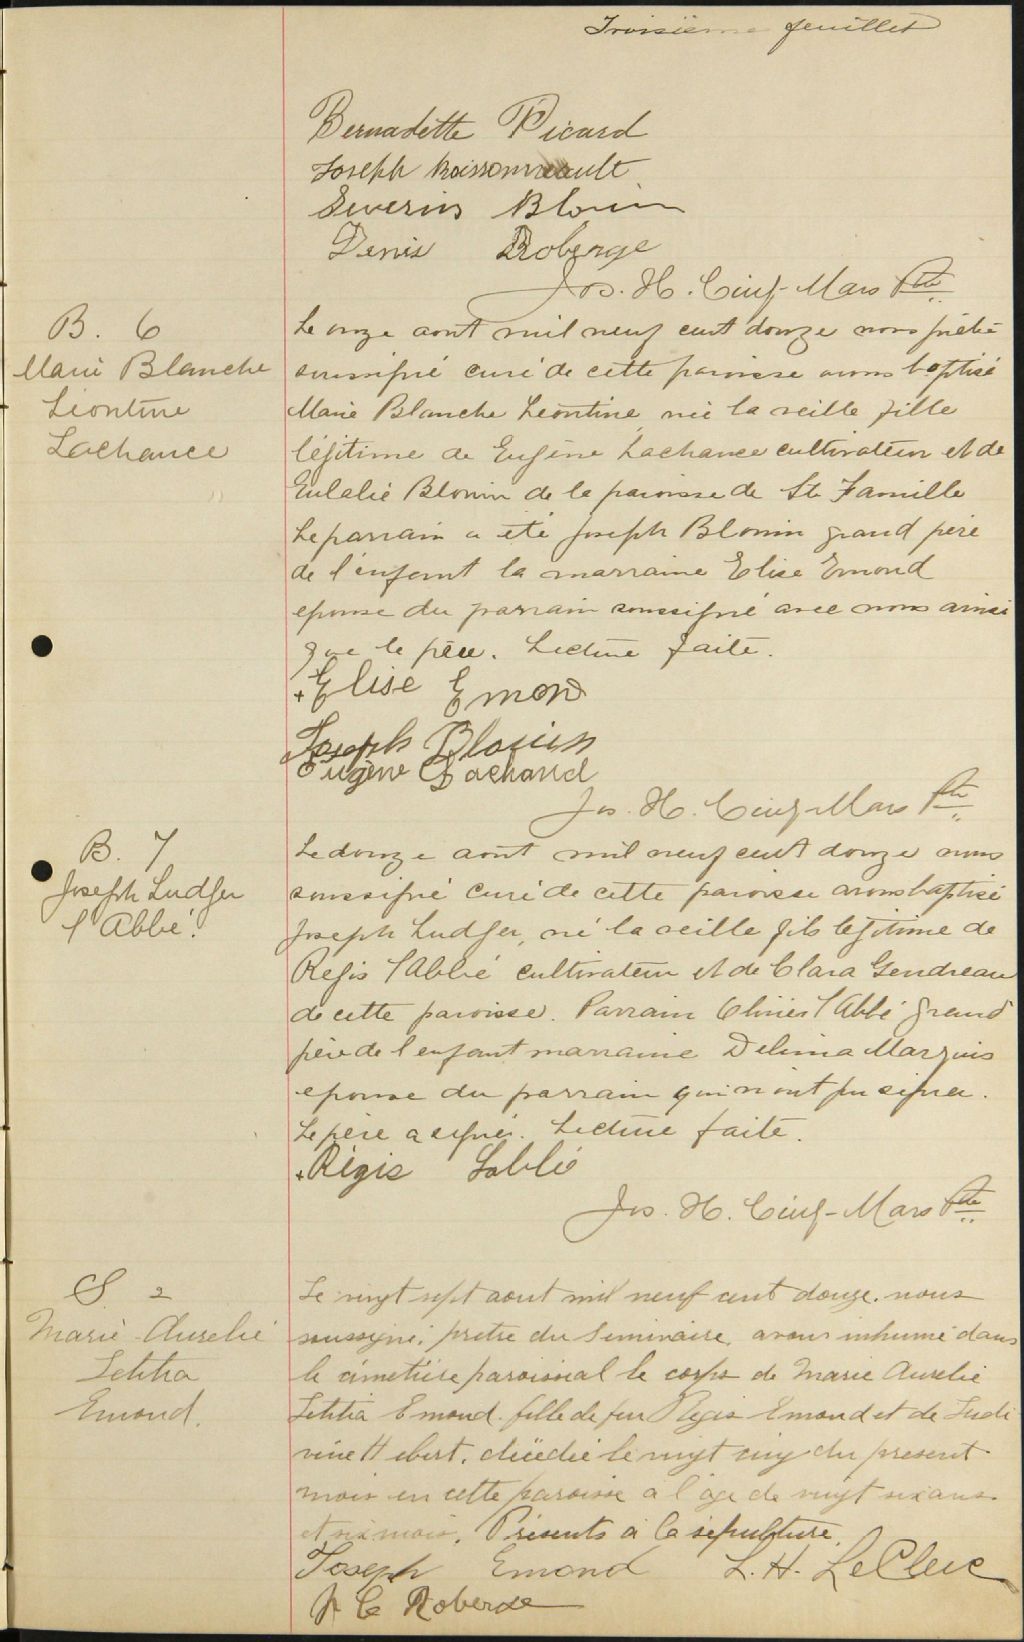 Troisième feuillet
Bernadette Picard
Joseph Boissonneault
Severin Blouin
Denis Roberge
Jos. H. Cinq-Mars Ptre
B. 6
Marie Blanche
Léontine
Lachance
Le onze août mil neuf cent douze nous prêtre
soussigné curé de cette paroisse avons baptisé
Marie Blanche Léontine, née la veille fille
légitime de Eugène Lachance cultivateur et de
Eulalie Blouin de la paroisse de Ste Famille
Le parrain a été Joseph Blouin grand père
de l'enfant la marraine Elise Emond
epouse du parrain soussigné avec nous ainsi
que le père. Lecture faite.
+Elise Emond
Joseph Blouin
Eugène Lachance
Jos. H. Cinq-Mars Ptre
B. 7
Joseph Ludger
l'Abbé.
Le douze août mil neuf cent douze nous
soussigné curé de cette paroisse avons baptisé
Joseph Ludger, né la veille fils légitime de
Regis l'Abbé cultivateur et de Clara Gendreau
de cette paroisse. Parrain Olivier l'Abbé grand
père de l'enfant marraine Delima Marquis
epouse du parrain qui n'ont pu signer.
Le père a signé. Lecture faite.
+Régis Labbé
Jos. H. Cinq-Mars Ptre
S 2
Marie Aurelie
Letitia
Emond.
Le vingt sept aout mil neuf cent douze. nous
soussigné, pretre du Seminaire, avons inhumé dans
le cimetière paroissial le corps de Marie Aurelie
Letitia Emond. fille de feu Régis Emond et de Ludi
vine Hebert, décédée le vingt cinq du present
mois en cette paroisse a l'age de vingt six ans
et six mois. Présents à la sépulture.
Joseph Emond L. H. LeClerc
J C Roberge